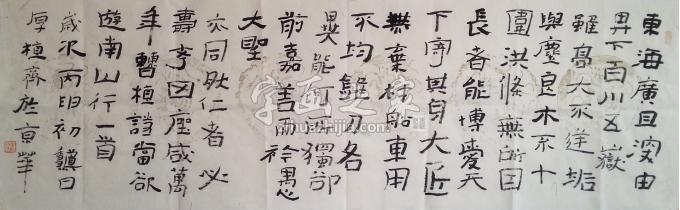 東海廣且深由
卑下百川五嶽
雖高大不逆垢
與塵良木不十
圍洪條無所因
長者能博愛天
下寄其身大匠
無棄材船車用
不均錐刀各
異能何所獨卻
前嘉善而矜愚
大聖
亦同然仁者必
壽考四座咸萬
年曹植詩當欲
遊南山行一首
歲次丙申初日
厚植齋於京華
字画之家